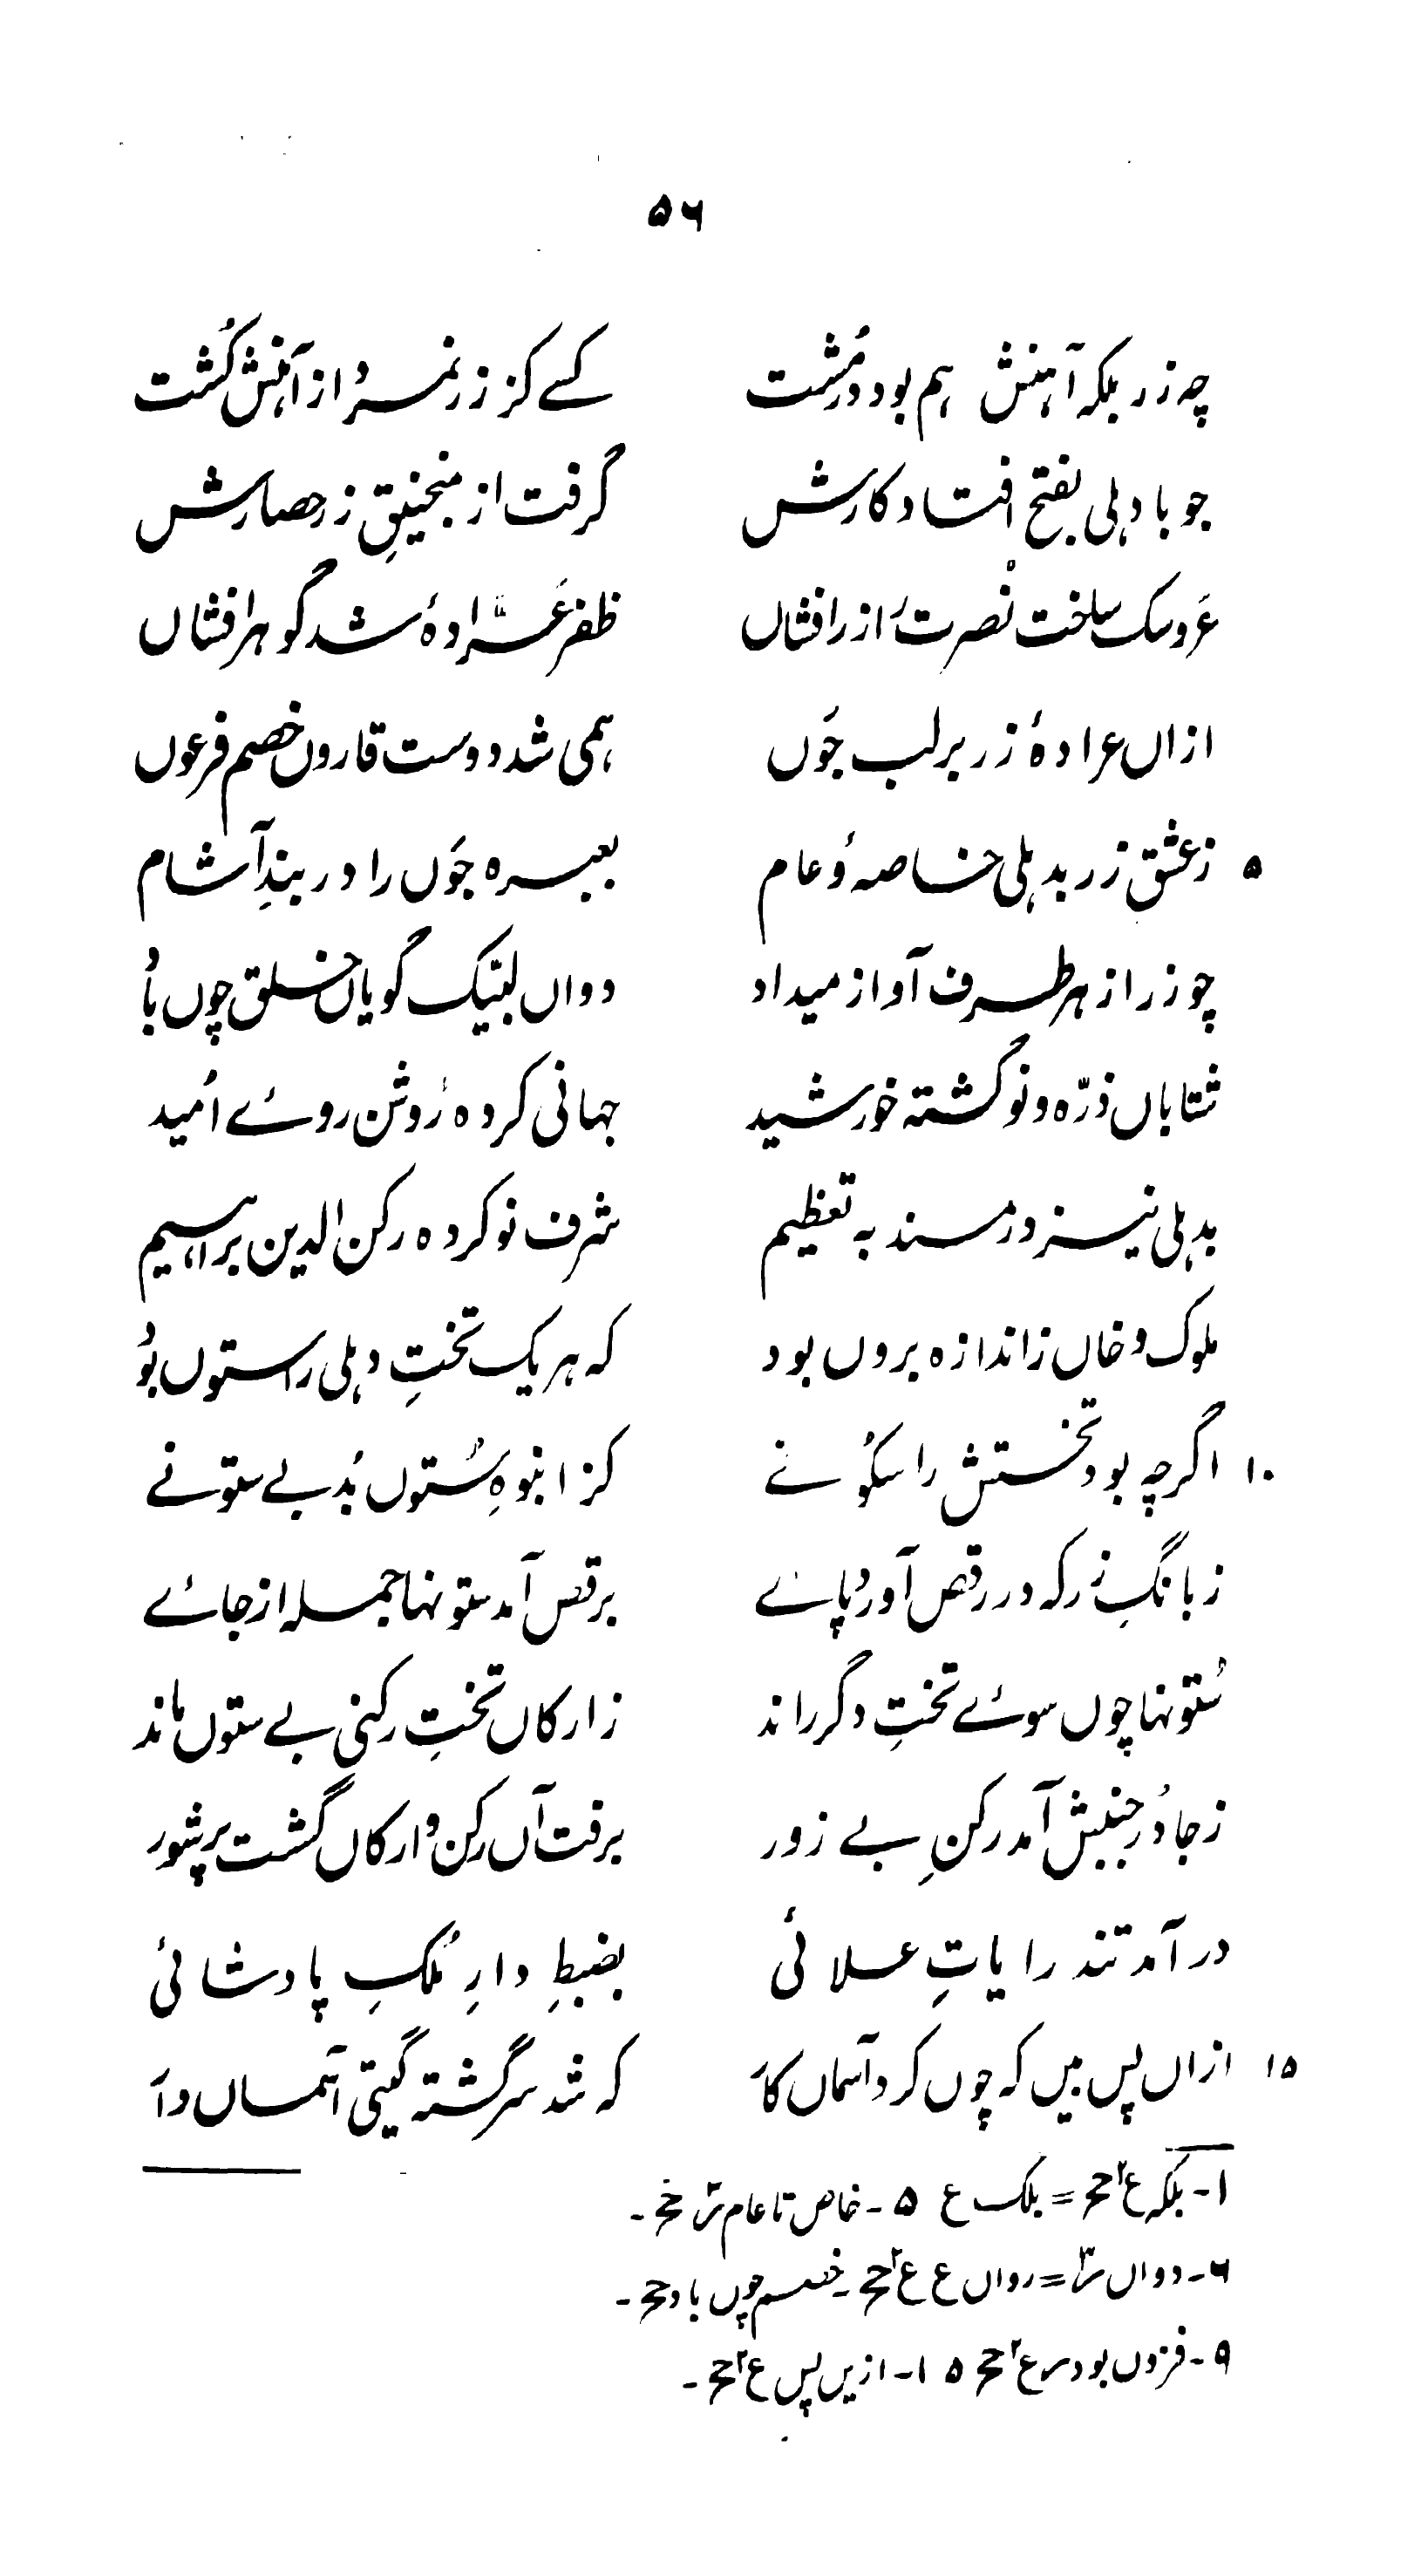 ۵۶
چہ زر بلکہ آہنش ہم بود در مُشت کسے کز زر نمرد از آہنش کُشت
چو با دہلی بفتح افتاد کارش گرفت از منجنیقِ زر حصارش
عروسک ساخت نصرت از زر افشاں ظفر عرّادہٴ شد گوہر افشاں
ازاں عرادہٴ زر بر لب جَوں ہمی شد دوست قاروں خصم فرعوں
۵ ز عشق زر بدہلی خاصہ و عام بعبرہ جَوں را در بندِ آشام
چو زر از ہر طرف آواز میداد دواں لبّیک گویاں خلق چوں باد
شتاباں ذرّہ و نو گشتہ خورشید جہانی کردہ روشن روئے اُمید
بدہلی نیز در مسند بہ تعظیم شرف نو کردہ رکن الدین براہیم
ملوک و خاں ز اندازہ بروں بود کہ ہر یک تختِ دہلی را ستوں بُود
۱۰ اگرچہ بود تختش را سکُونے کز انبوہِ سُتوں بُد بے ستونے
ز بانگِ زر کہ در رقص آورد پائے برقص آمد ستونہا جملہ از جائے
سُتونہا چوں سوئے تختِ دگر راند ز ارکاں تختِ رکنی بے ستوں ماند
ز جا دُر جنبش آمد رکنِ بے زور برفت آں رکن و ارکاں گشت پر شور
در آمد تند رایاتِ علائی بضبطِ دارِ مُلکِ پادشائی
۱۵ ازاں پس بیں کہ چوں کرد آسماں کار کہ شد سرگشتہ گیتی آسماں وار
۱۔ بلکہ ع۲ ح = بلک ع ۵۔ خاص تا عام
۶۔ دواں = رواں ع ع۲ ح۔ چوں باد ح۔
۹۔ فزوں بود س ع۲ ح ۱۵۔ ازیں پس ع۲ ح۔